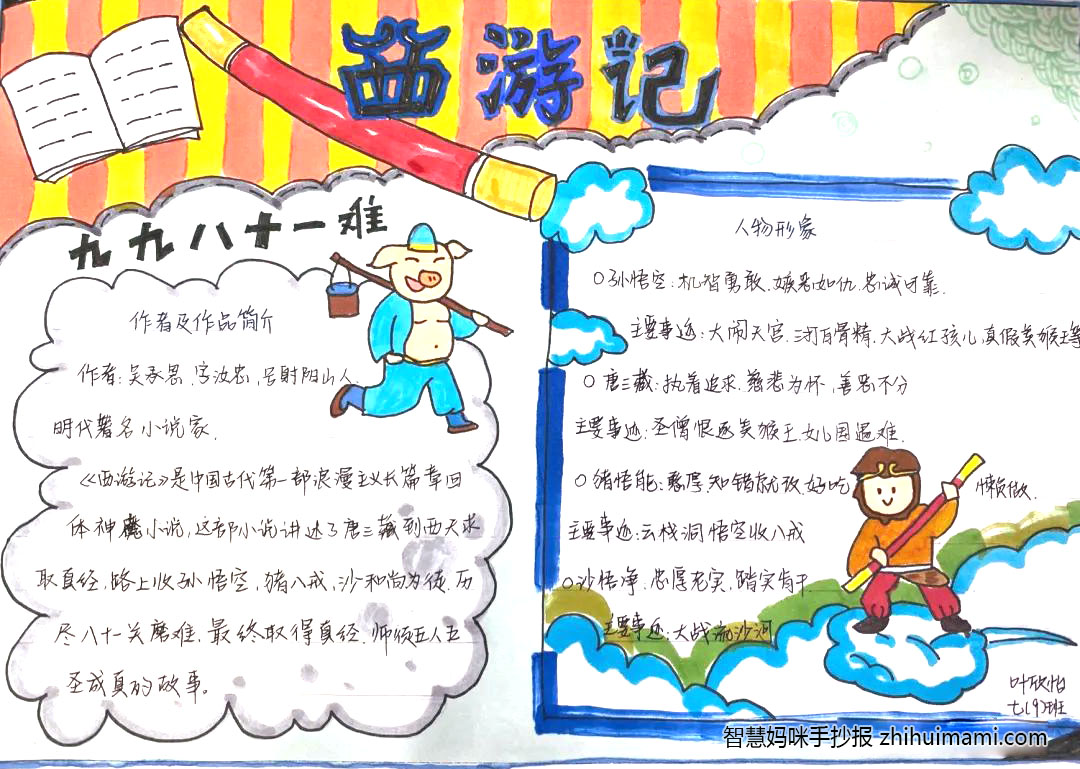 西游记
九九八十一难
作者及作品简介
作者:吴承恩,字汝忠,号射阳山人.
明代著名小说家.
《西游记》是中国古代第一部浪漫主义长篇章回
体神魔小说,这部小说讲述了唐三藏到西天求
取真经,路上收孙悟空,猪八戒,沙和尚为徒.历
尽八十一关磨难.最终取得真经.师徒五人五
圣成真的故事。
人物形象
○孙悟空:机智勇敢.嫉恶如仇.忠诚可靠.
主要事迹:大闹天宫.三打白骨精.大战红孩儿.真假美猴王等
○唐三藏:执着追求.慈悲为怀,善恶不分
主要事迹:圣僧恨逐美猴王.女儿国遇难.
○猪悟能:憨厚.知错就改.好吃懒做.
主要事迹:云栈洞悟空收八戒
○沙悟净:忠厚老实,踏实肯干.
主要事迹:大战流沙河
叶欣怡
七(9)班
智慧妈咪手抄报 zhihuimami.com